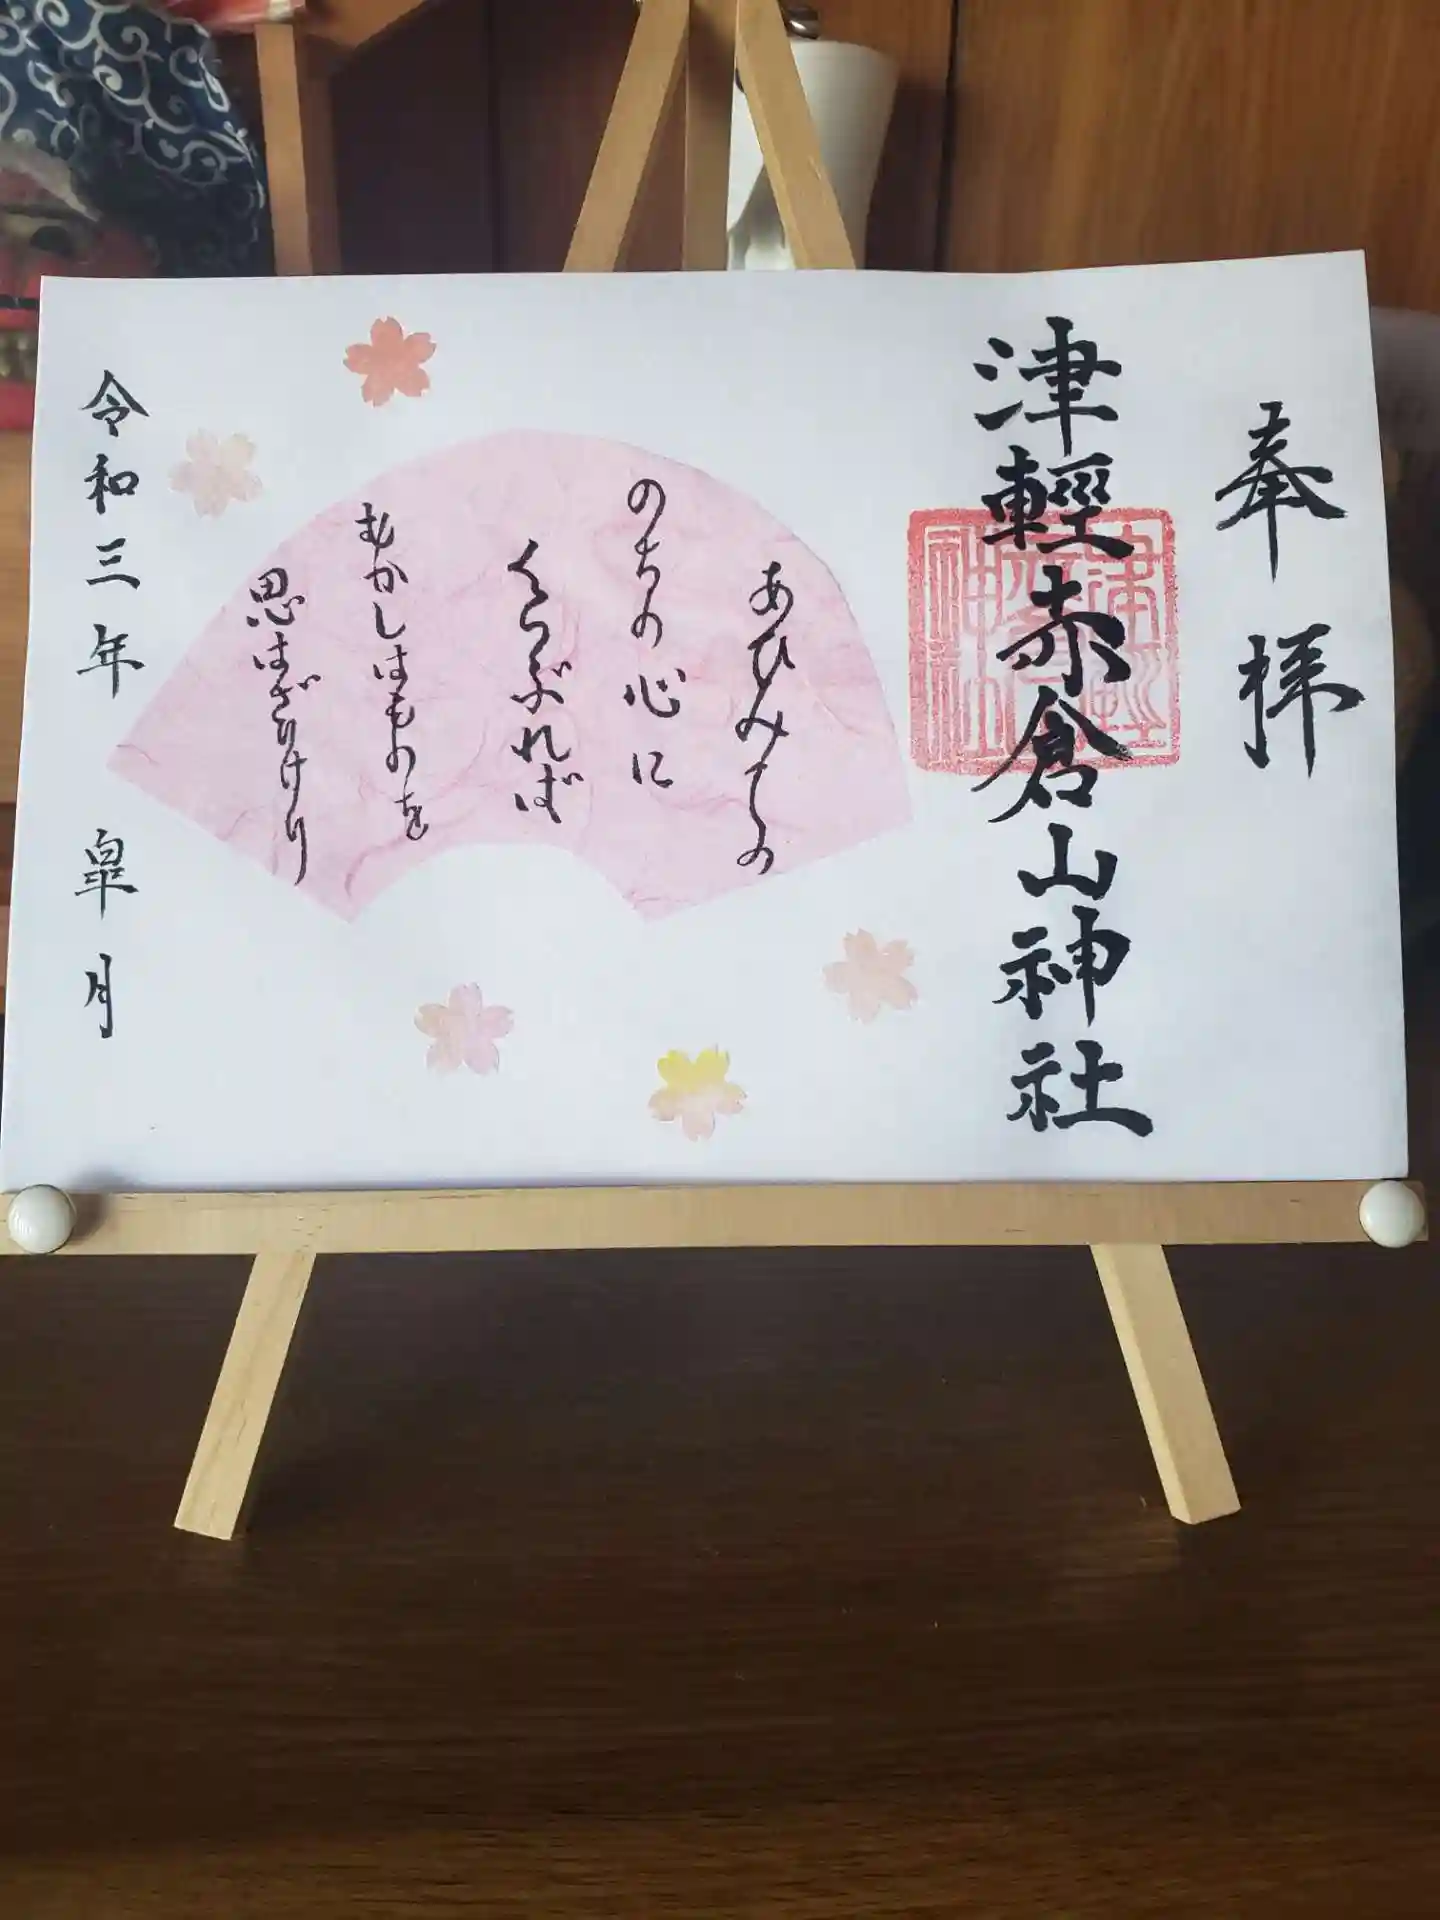 奉拝
津輕赤倉山神社
あひみての
のちの心に
くらぶれば
むかしはものを
思はざりけり
令和三年 皐月